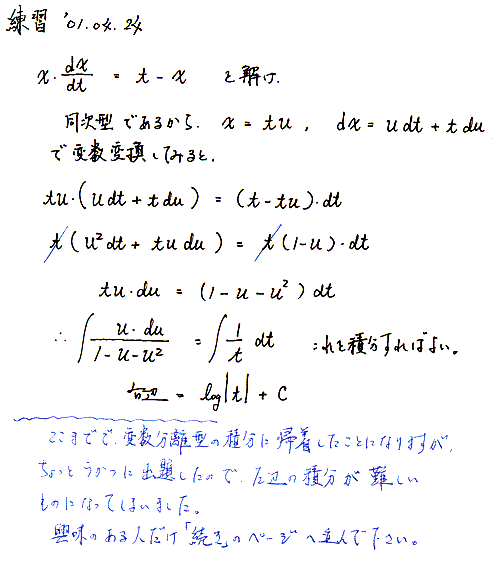 練習 '01.04.24
x・dx/dt = t - x を解け.
同次型であるから. x = tu , dx = u dt + t du
で変数変換してみると.
tu・(u dt + t du) = (t - tu)・dt
t(u²dt + tu du) = t(1-u)・dt
tu・du = (1 - u - u²) dt
∴ ∫ u・du/1-u-u² = ∫ 1/t dt これを積分すればよい。
右辺 = log|t| + C
ここまでで、変数分離型の積分に帰着したことになりますが、
ちょっとうかつに出題したので、左辺の積分が難しい
ものになってしまいました。
興味のある人だけ「続き」のページへ進んで下さい。